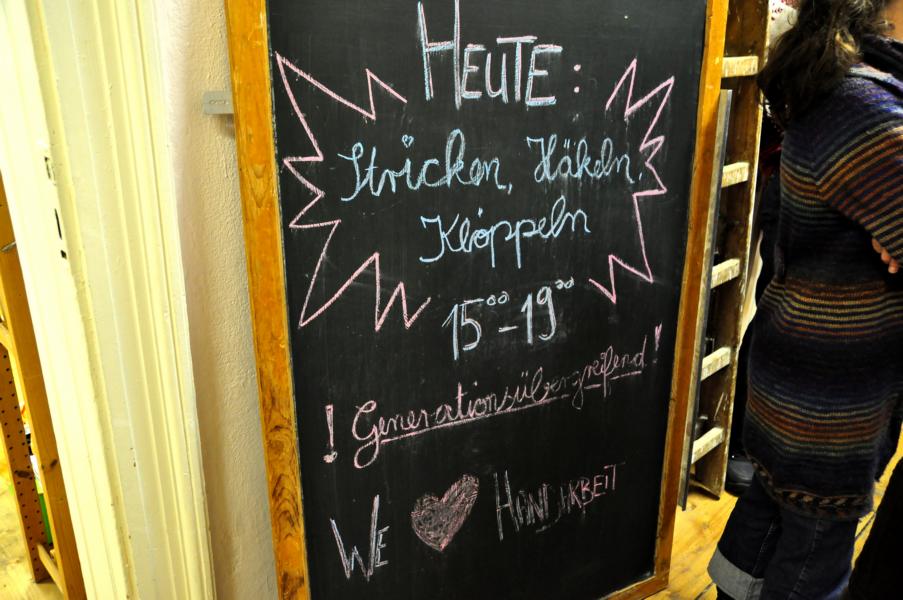 HEUTE:
Stricken, Häkeln,
Klöppeln
15⁰⁰-19⁰⁰
! Generationsübergreifend!
WE ❤ HANDARBEIT